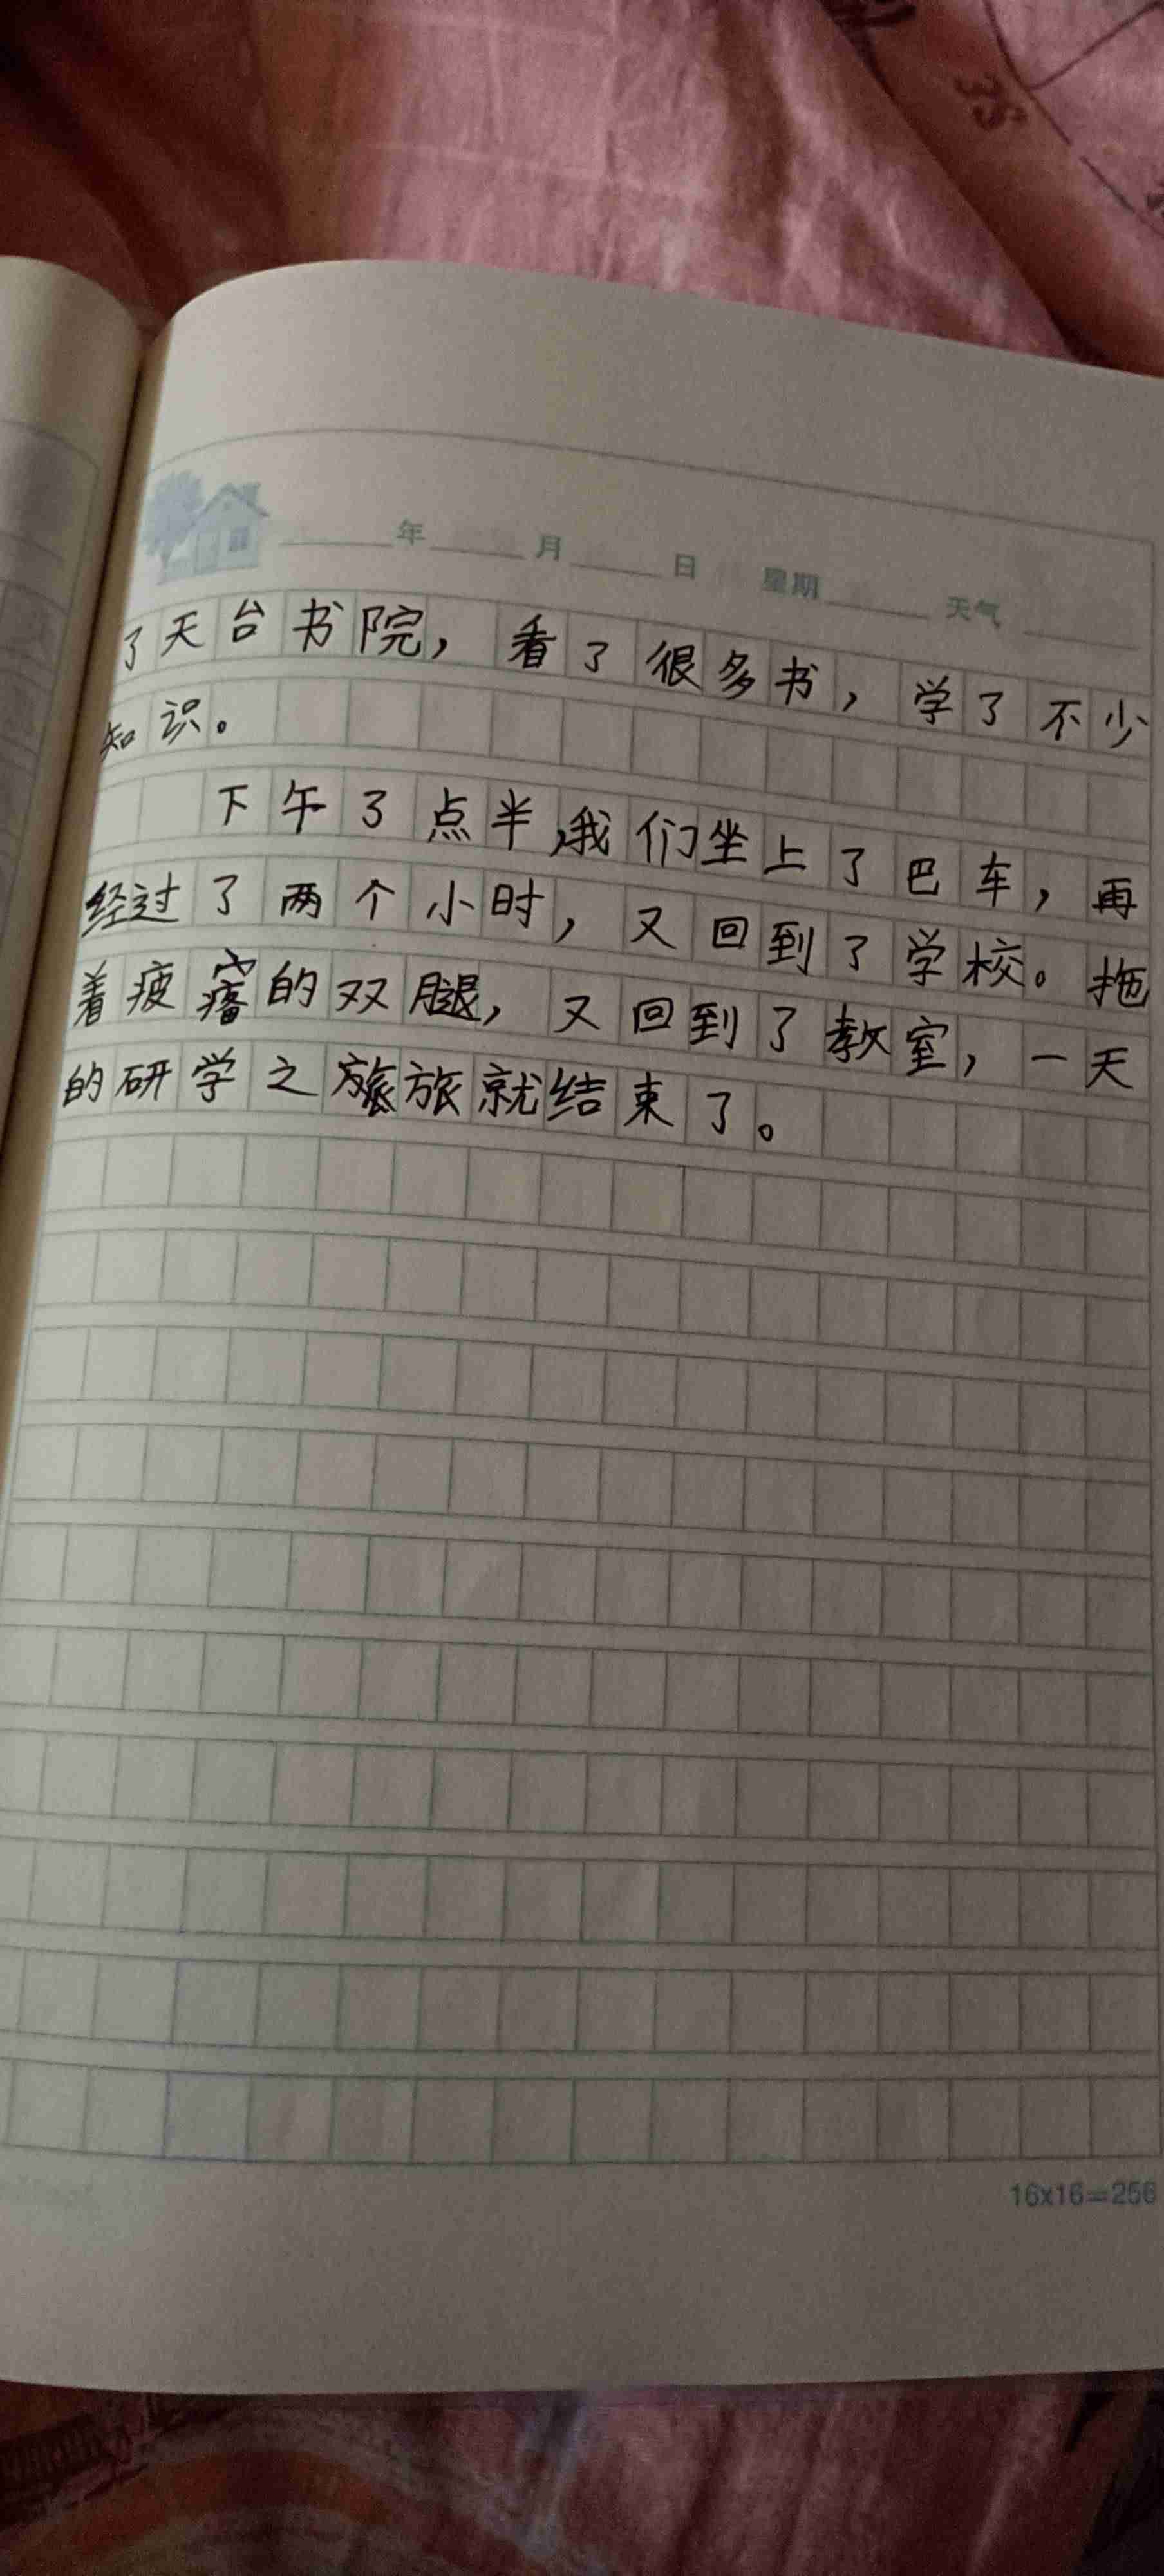 年 月 日 星期 天气
了天台书院，看了很多书，学了不少
知识。
下午3点半，我们坐上了巴车，再
经过了两个小时，又回到了学校。拖
着疲的双腿，又回到了教室，一天
的研学之旅旅就结束了。
16x16=256